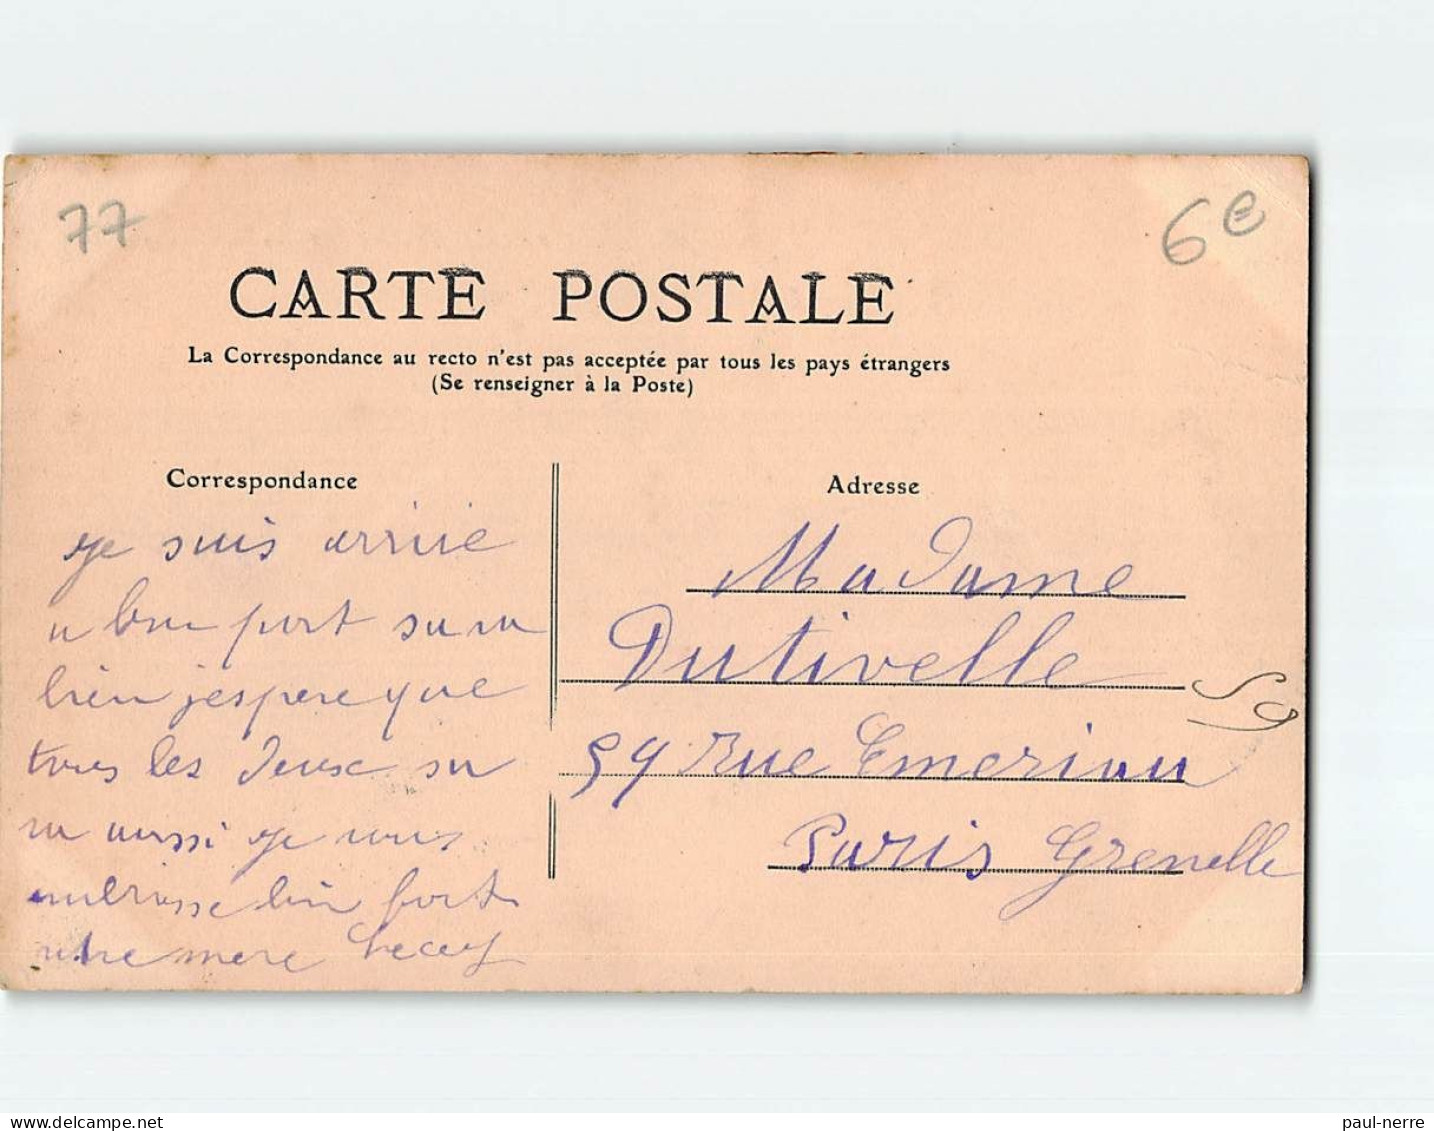 77
6e
CARTE POSTALE
La Correspondance au recto n'est pas acceptée par tous les pays étrangers
(Se renseigner à la Poste)
Correspondance
Adresse
je suis arrivé
a bon port sa va
bien j'espere que
tous les deux sa
va aussi je vous
embrasse bien fort
votre mere
Madame
Dutivelle
59 Rue Emeriau
59
Paris Grenelle
delcampe.net
paul-nerre